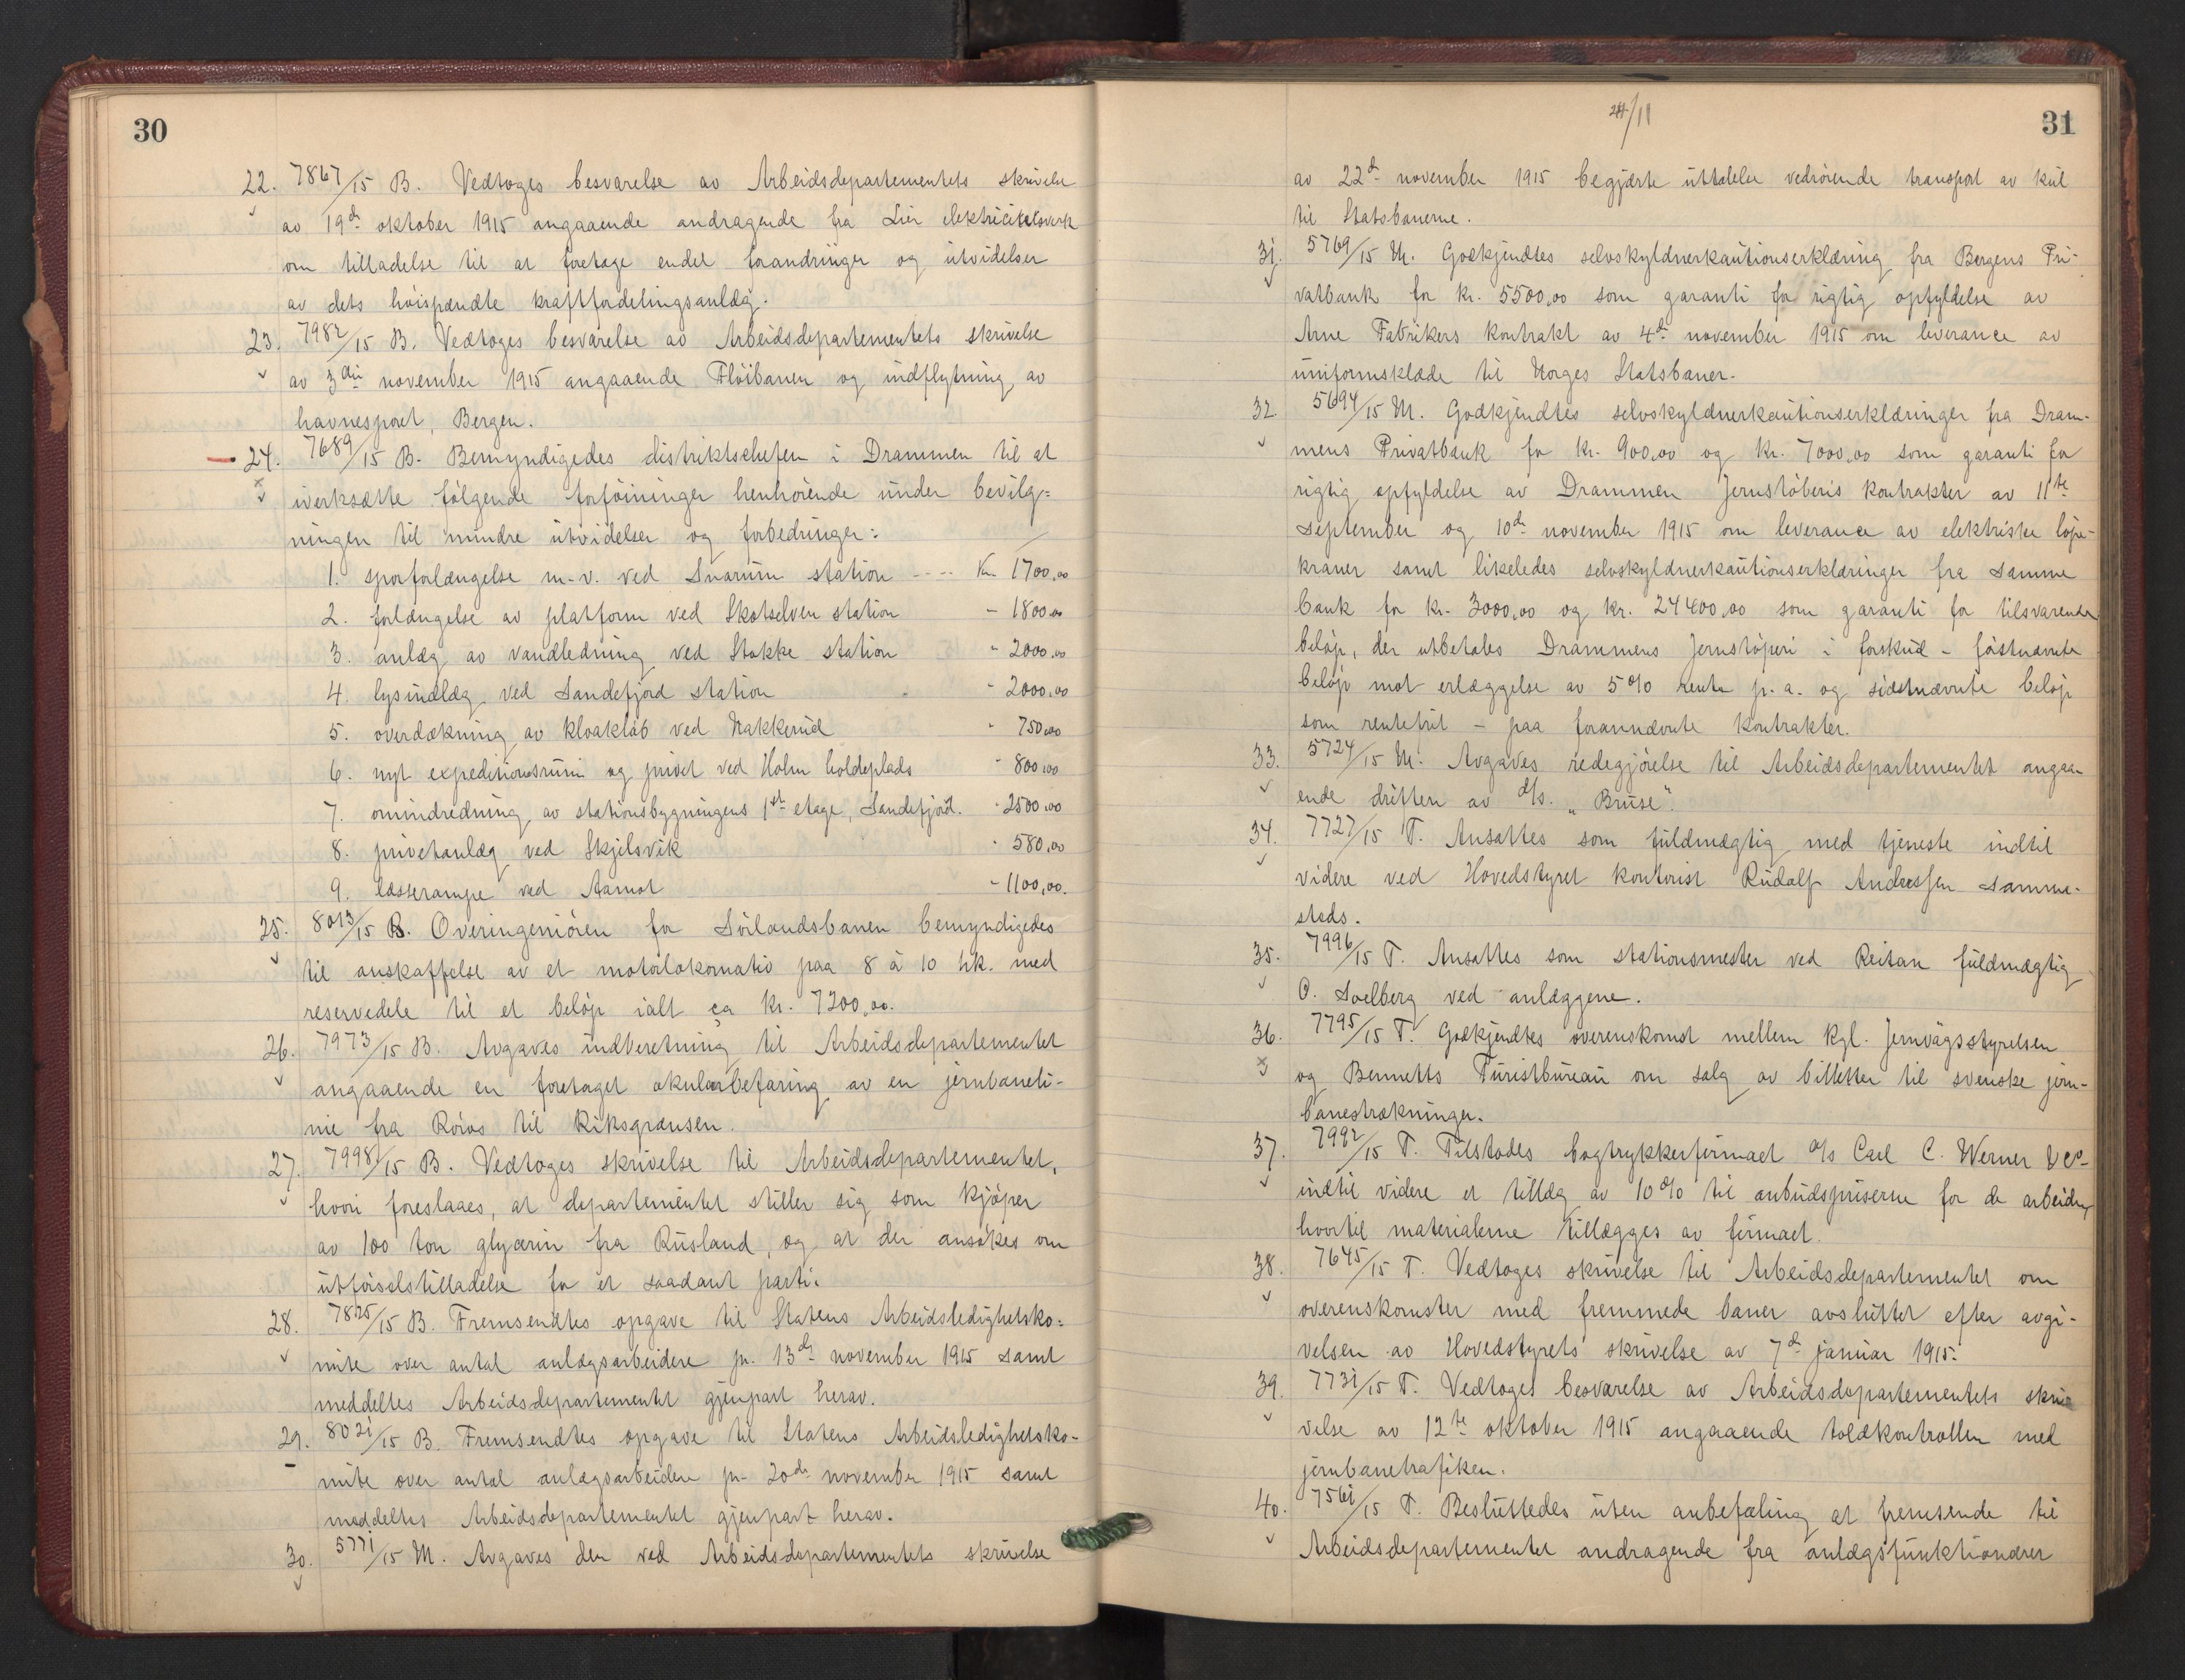 30
22. 7867/15 B. Vedtoges besvarelse av Arbeidsdepartementets skrivelse
av 19de oktober 1915 angaaende andragende fra Lier elektricitetsverk
om tilladelse til at foretage endel forandringer og utvidelser
av dets høispændte kraftfordelingsanlæg.
23. 7982/15 B. Vedtoges besvarelse av Arbeidsdepartementets skrivelse
av 3die november 1915 angaaende Fløibanen og indflytning av
havnesporet, Bergen.
24. 7689/15 B. Bemyndigedes distriktschefen i Drammen til at
iverksætte følgende forføininger henhørende under bevilg=
ningen til mindre utvidelser og forbedringer:
1. sporforlængelse m.v. ved Snarum station ---- Kr. 1700,00
2. forlængelse av platform ved Skotselven station - 1800,00
3. anlæg av vandledning ved Stokke station - 2000,00
4. lysindlæg ved Sandefjord station - 2000,00
5. overdækning av kloakløb ved Nakkerud - 750,00
6. nyt expeditionsrum og privet ved Holm holdeplads - 800,00
7. omindredning av stationsbygningens 1ste etage, Sandefjord. - 2500,00
8. privetanlæg ved Skjelsvik - 580,00
9. læsserampe ved Aamot - 1100,00.
25. 8013/15 B. Overingeniøren for Sørlandsbanen bemyndigedes
til anskaffelse av et motorlokomotiv paa 8 à 10 hk. med
reservedele til et beløp ialt ca kr. 7200,00.
26. 7973/15 B. Avgaves indberetning til Arbeidsdepartementet
angaaende en foretaget okularbefaring av en jernbaneli-
nie fra Røros til Riksgrænsen.
27. 7998/15 B. Vedtoges skrivelse til Arbeidsdepartementet,
hvori foreslaaes, at departementet stiller sig som kjøper
av 100 ton glycerin fra Rusland, og at der ansøkes om
utførselstilladelse for et saadant parti.
28. 7825/15 B. Fremsendtes opgave til Statens Arbeidsledighetsko=
mite over antal anlægsarbeidere pr. 13de november 1915 samt
meddeltes Arbeidsdepartementet gjenpart herav.
29. 8021/15 B. Fremsendtes opgave til Statens Arbeidsledighetsko-
mite over antal anlægsarbeidere pr. 20de november 1915 samt
meddeltes Arbeidsdepartementet gjenpart herav.
30. 5771/15 M. Avgaves den ved Arbeidsdepartementets skrivelse
24/11
31
av 22de november 1915 begjærte uttalelse vedrørende transport av kul
til Statsbanerne.
31. 5769/15 M. Godkjendtes selvskyldnerkautionserklæring fra Bergens Pri-
vatbank for kr. 5500,00 som garanti for rigtig opfyldelse av
Arne Fabrikers kontrakt av 4de november 1915 om leverance av
uniformsklæde til Norges Statsbaner.
32. 5694/15 M. Godkjendtes selvskyldnerkautionserklæringer fra Dram-
mens Privatbank for kr. 900,00 og kr. 7000,00 som garanti for
rigtig opfyldelse av Drammen Jernstøberis kontrakter av 11te
september og 10de november 1915 om leverance av elektriske løpe-
kraner samt likeledes selvskyldnerkautionserklæringer fra samme
bank for kr. 3000,00 og kr. 24400,00 som garanti for tilsvarende
beløp, der utbetales Drammens Jernstøperi i forskud - førstnævnte
beløp mot erlæggelse av 5% rente p.a. og sidstnævnte beløp
som rentefrit - paa forannævnte kontrakter.
33. 5724/15 M. Avgaves redegjørelse til Arbeidsdepartementet angaa-
ende driften av d/s. "Bruse".
34. 7727/15 T. Ansattes som fuldmægtig med tjeneste indtil
videre ved Hovedstyret kontorist Rudolf Andressen samme-
steds.
35. 7996/15 T. Ansattes som stationsmester ved Reitan fuldmægtig
O. Soelberg ved anlæggene.
36. 7795/15 T. Godkjendtes overenskomst mellem Kgl. Jernvägsstyrelsen
og Bennetts Turistbureau om salg av billetter til svenske jern-
banestrækninger.
37. 7992/15 T. Tilstodes bogtrykkerfirmaet a/s Carl C. Werner & Co
indtil videre et tillæg av 10% til anbudspriserne for de arbeider,
hvortil materialerne tillægges av firmaet.
38. 7645/15 T. Vedtoges skrivelse til Arbeidsdepartementet om
overenskomster med fremmede baner avsluttet efter avgi-
velsen av Hovedstyrets skrivelse av 7de januar 1915.
39. 7731/15 T. Vedtoges besvarelse av Arbeidsdepartementets skri-
velse av 12te oktober 1915 angaaende toldkontrollen med
jernbanetrafiken.
40. 7561/15 T. Besluttedes uten anbefaling at fremsende til
Arbeidsdepartementet andragende fra anlægsfunktionærer